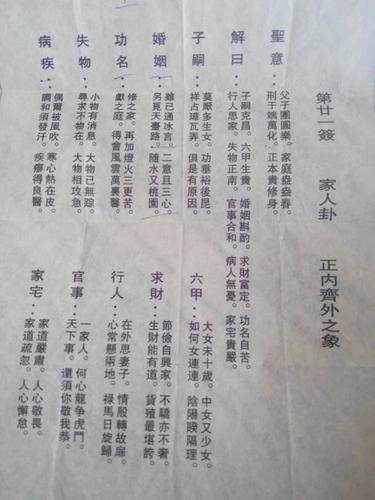 第廿一簽 家人卦 正內齊外之象
聖意：
父子團圓樂。家庭盎盎春。
刑于端萬化。正本貴修身。
解曰：
子嗣克昌。六甲生貴。婚姻斟酌。求財富定。功名自苦。
行人思家。失物正南。官事合和。病人無憂。家宅貴嚴。
子嗣：
莫厭多生女。功垂裕後昆。
祥占璋瓦弄。俱是有原因。
六甲：
大女未十歲。中女又少女。
如何女連連。陰陽睽隔理。
婚姻：
雖已通冰言。二意且三心。
另覓天臺路。隨水又桃園。
求財：
節儉自興家。不驕亦不奢。
生財能有道。貨殖最堪誇。
功名：
修之家。再加燈火三更苦。
獻之庭。得會風雲萬裏馨。
行人：
在外思妻子。情殷轉故扉。
心常懸兩地。祿馬日旋歸。
失物：
小物有消息。大物已無踪。
尋求不物在。大物相攻急。
官事：
一家人。何心龍爭虎鬥。
天下事。還須你敬我恭。
病疾：
偶爾被風吹。寒心熱在皮。
調和須發汗。疾瘳得良醫。
家宅：
家道嚴肅。人心敬畏。
家道疏忽。人心懈怠。